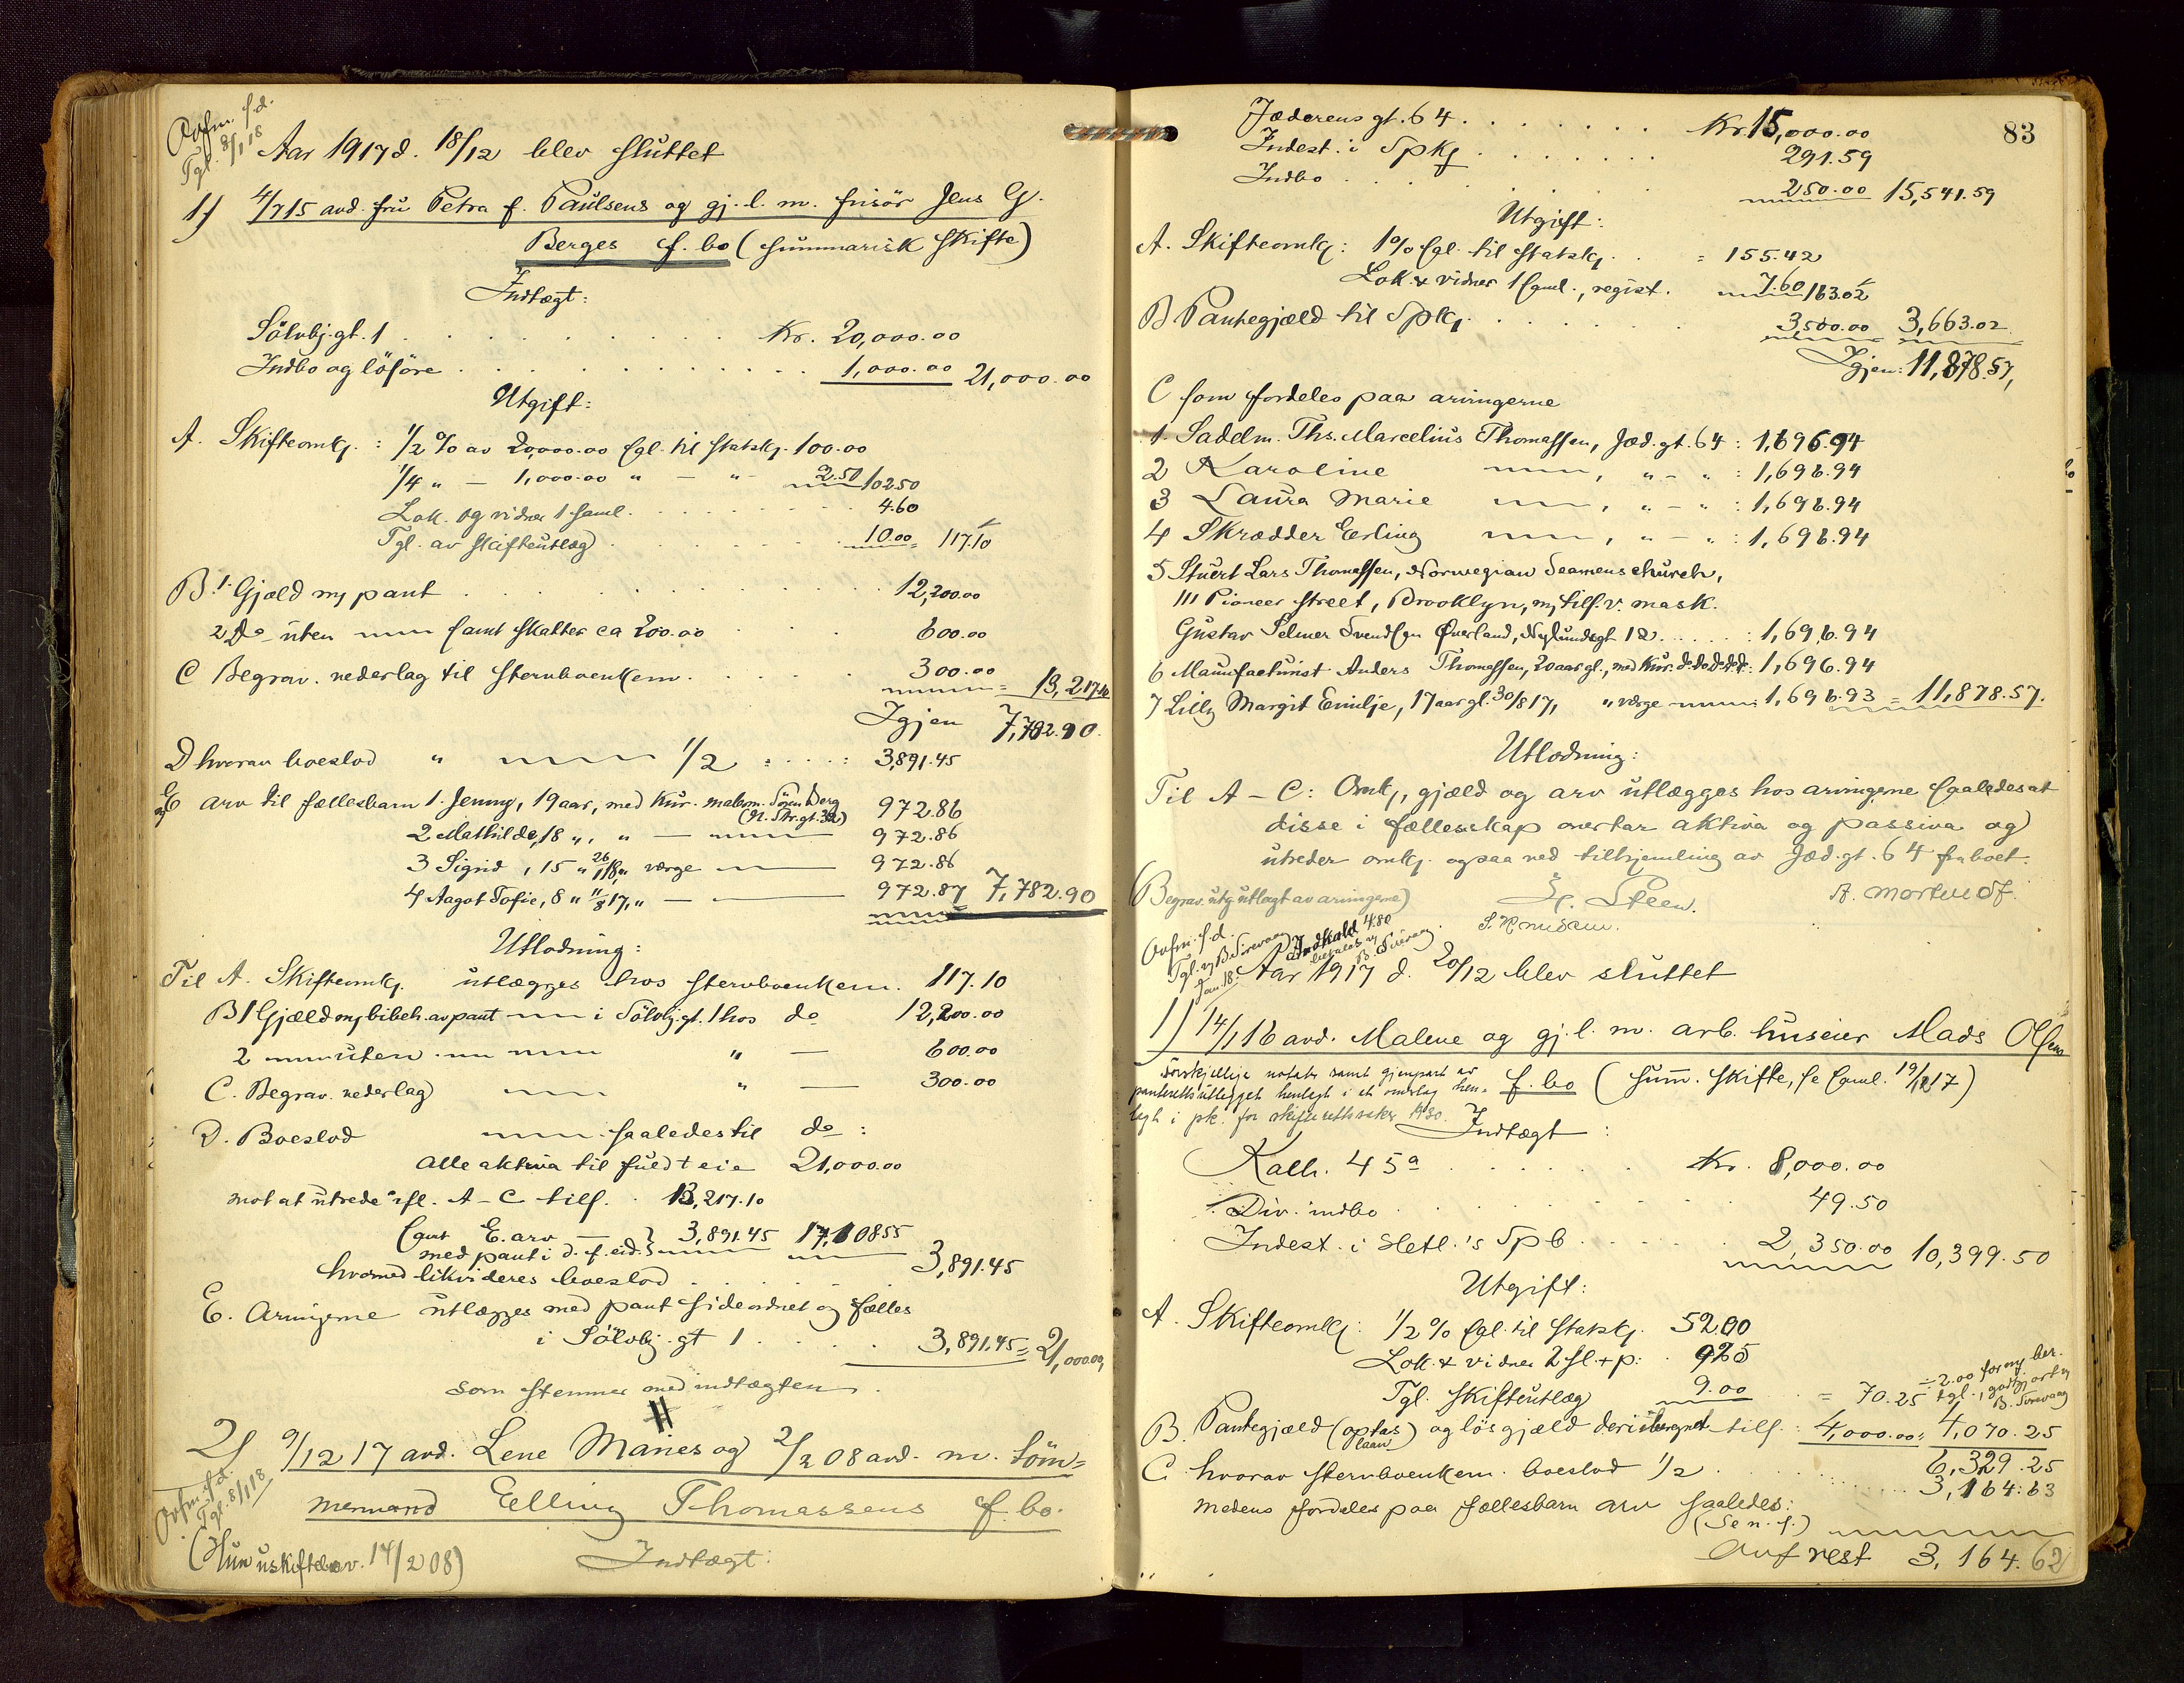 Avfm. f.d.
Tgl. 8/1 18
Aar 1917 d. 18/12 blev sluttet
1) 4/7 15 avd. fru Petra f. Paulsens og gj. l. m. frisör Jens G.
Berges f. bo (summarisk skifte)
Indtægt:
Sölvbj.gt. 1 . . . Kr. 20,000.00
Indbo og lösöre . . . 1,000.00 21,000.00
Utgift:
A. Skifteomk. : 1/2 % av 20,000.00 sgl. til statsk. 100.00
1/4 " — 1,000.00 " — " 2.50 102.50
Lok. og vidner 1 saml. . . . 4.60
Tgl. av skifteutlæg . . . 10.00 = 117.10
B. 1. Gjæld m/ pant . . . 12,200.00
2 Do uten — samt skatter ca 200.00 . . . 600.00
C Begrav. vederlag til stervboenkem. . . . 300.00 = 13,217.10
Igjen 7,782.90
D hvorav boeslod " — 1/2 : . . . : 3,891.45
E og arv til fællesbarn 1. Jenny, 19 aar, med kur. malerm. Sören Berg 972.86
(N. Str.gt. 32)
2 Mathilde, 18 ", " — 972.86
3 Sigrid, 15 " 26/1 18, " værge — 972.86
4 Aagot Sofie, 8 " 11/8 17, " — 972.87 7,782.90
Utlodning:
Til A. Skifteomk. utlægges hos stervboenkem. 117.10
B 1 Gjæld m/ bibeh. av pant — i Sölvbj.gt. 1 hos do 12,200.00
2 — uten — " — 600.00
C. Begrav. vederlag — " — 300.00
D. Boeslod — saaledes til do :
Alle aktiva til fuldt eie 21,000.00
mot at utrede ifl. A – C tils. . 13,217.10
samt E. arv — 3,891.45 17,108.55
med pant i d. f. eid.
hvormed likvideres boeslod . . . 3,891.45
E. Arvingerne utlægges med pant sideordnet og fælles
i Sölvbj. gt 1 . . . 3,891.45 = 21,000.00,
som stemmer med indtægten.
2) 9/12 17 avd. Lene Maries og 2/2 08 avd. m. töm-
mermand Elling Thomassens f. bo.
Avfm. f.d.
Tgl. 8/1 18
(Hun uskiftebev. 14/2 08) Indtægt:
83
Jæderens gt. 64 . . . Kr. 15,000.00
Indest. i Spk. . . . 291.59
Indbo . . . 250.00 15,541.59
Utgift:
A. Skifteomk: 1 % sgl. til statsk. . = 155.42
Lok. & vidner 1 saml., regist. 7.60 163.02
B Pantegjæld til Spk. . . . 3,500.00 3,663.02
Igjen: 11,878.57,
C som fordeles paa arvingerne
1. Sadelm. Ths. Marcelius Thomassen, Jæd. gt. 64 : 1,696.94
2 Karoline —, " - " : 1,696.94
3 Laura Marie —, " - " : 1,696.94
4 Skrædder Erling —, " - " : 1,696.94
5 Stuert Lars Thomassen, Norwegian Seamens church,
111 Pioneer street, Brooklyn, m/ tils. v. mask.
Gustav Selmer Svendsen Överland, Nylundsgt 12 . . . : 1,696.94
6 Manufacturist Anders Thomassen, 20 aar gl., med kur. do do do do : 1,696.94
7 Lilly Margit Emilje, 17 aar gl. 30/8 17, " værge — : 1,696.93 = 11,878.57.
Utlodning:
Til A – C: Omk., gjæld og arv utlægges hos arvingerne saaledes at
disse i fællesskap overtar aktiva og passiva og
utreder omk. ogsaa ved tilhjemling av Jæd. gt. 64 fra boet.
(Begrav. utg utlagt av arvingerne)
Avfm. f.d.
Aar 1917 d. 20/12 blev sluttet
1) 14/1 16 avd. Malene og gj. l. m. arb. huseier Mads Olsens
f. bo (summ. skifte, se saml. 19/12 17)
Forskjellige notater samt gjenpart av
panterettsutlegget henlagt i et omslag hen-
lagt i pk. for skifterettssaker
Indtægt :
Kalh. 45a . . . Kr. 8,000.00
Div. indbo . . . 49.50
Indest. i Hetl.'s Spb . . . 2,350.00 10,399.50
Utgift:
A. Skifteomk: 1/2 % sgl. til statsk. 52.00
Lok. & vidner 2 sl. + p: . 9.25
Tgl. skifteutlæg 9.00 = 70.25
B. Pantegjæld (optas laan) og lösgjæld deri iberegnet tils. : 4,000.00 = 4,070.25
6,329.25
C. hvorav stervboenkem. boeslod 1/2 . . . 3,164.63
medens fordeles paa fællesbarn arv saaledes:
(Se n. s.)
Avf rest 3,164.62